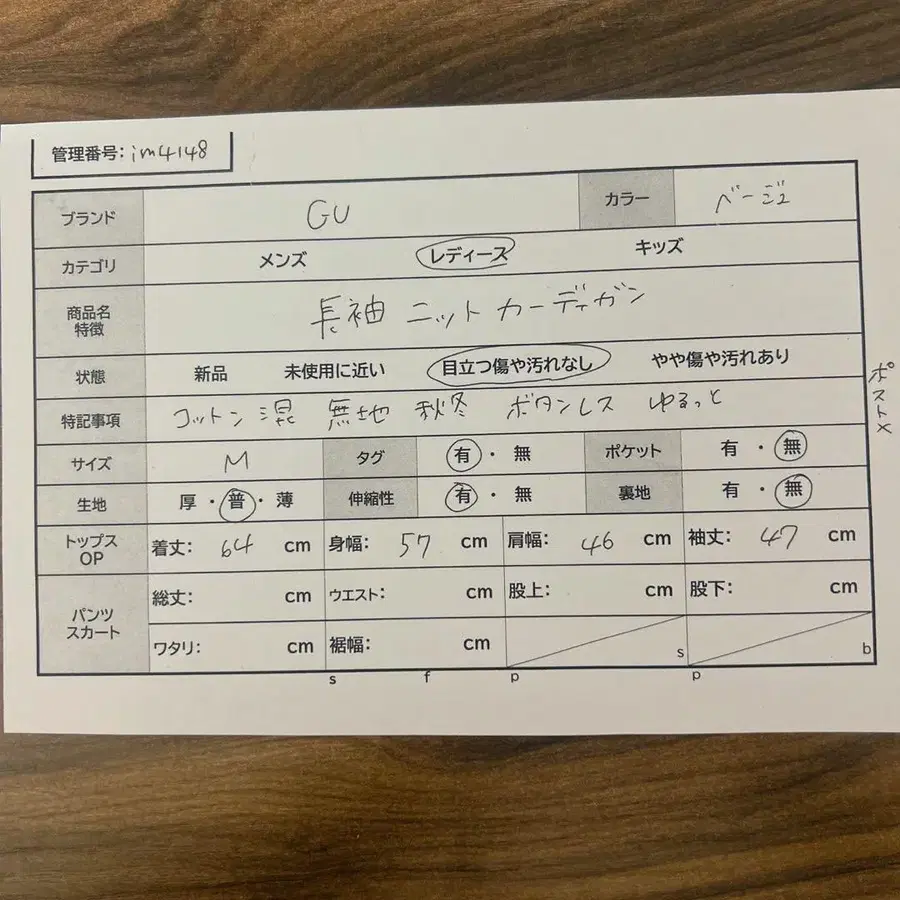 管理番号: im4148
ブランド GU カラー ベージュ
カテゴリ メンズ レディース キッズ
商品名 特徴 長袖 ニット カーディガン
状態 新品 未使用に近い 目立つ傷や汚れなし やや傷や汚れあり
特記事項 コットン混 無地 秋冬 ボタンレス ゆるっと
サイズ M タグ 有・無 ポケット 有・無
生地 厚・普・薄 伸縮性 有・無 裏地 有・無
トップス OP 着丈: 64 cm 身幅: 57 cm 肩幅: 46 cm 袖丈: 47 cm
パンツ スカート 総丈: cm ウエスト: cm 股上: cm 股下: cm
ワタリ: cm 裾幅: cm s b
s f p p
ポスト×